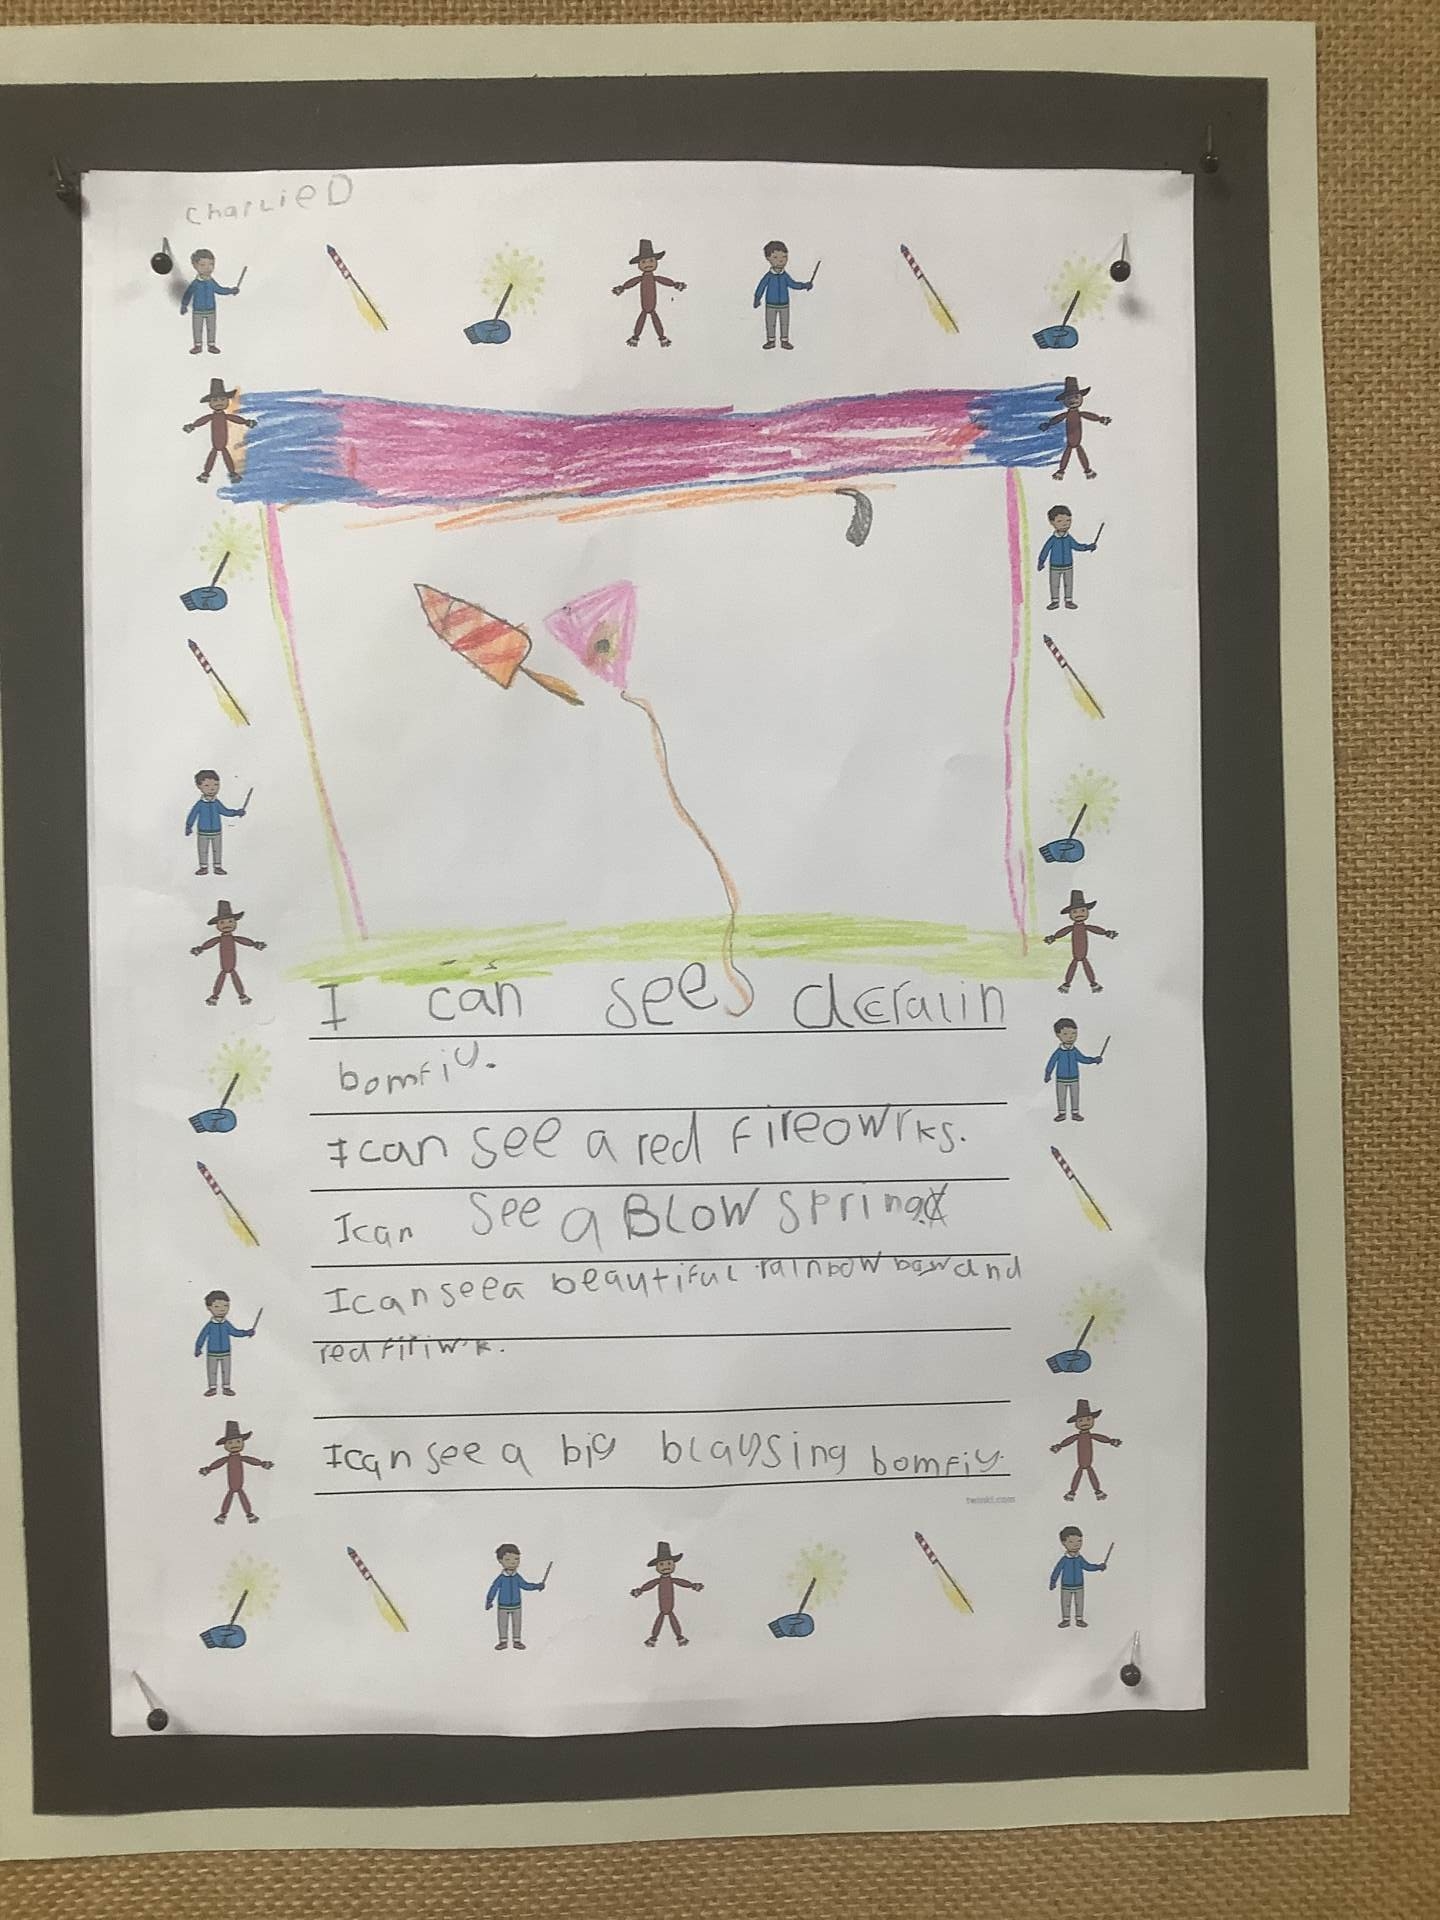 CharlieD
I can see
bomfiy.
I can see a red fireowrks.
I can see a BLOW spring
I can see a beautiful rainbow bow and
red firiwrk.
I can see a big blaysing bomfiy.
twinkl.com